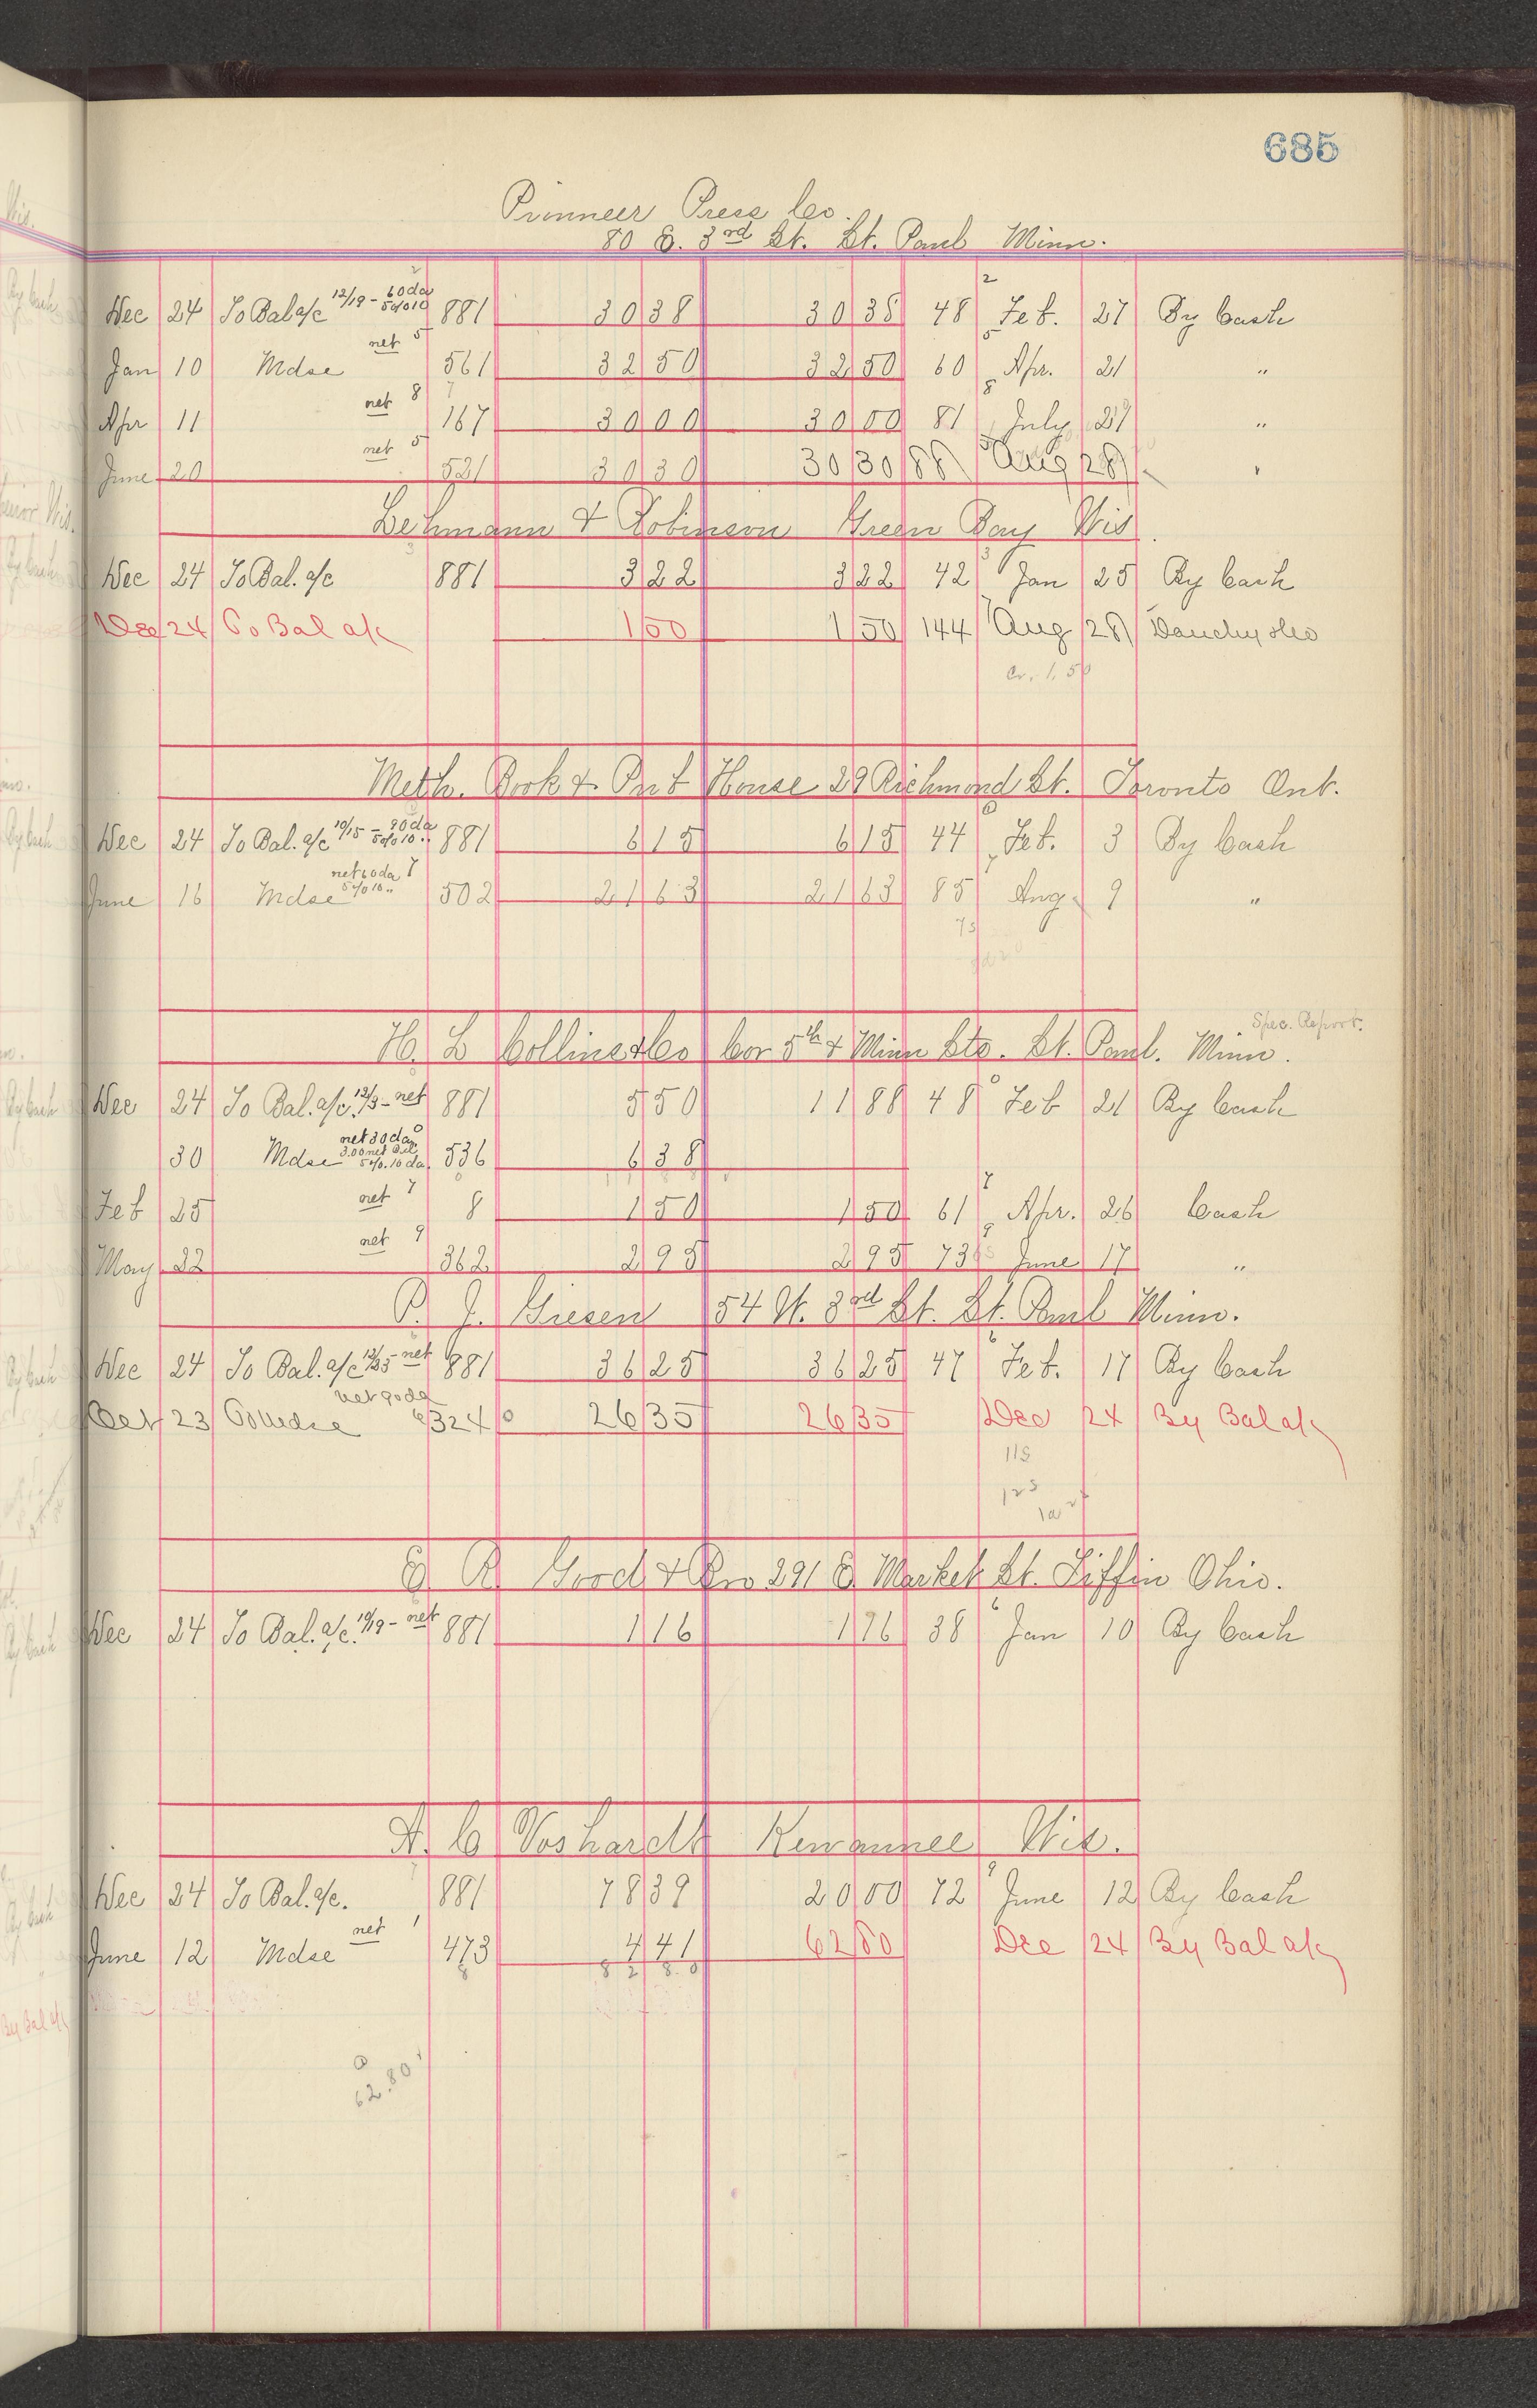 685
Pionneer Press Co.
80 E. 3rd St. St. Paul Minn.
Dec 24 To Bal a/c 12/19 - 60 da 5% 10 881 30 38 30 38 48 2 Feb. 27 By Cash
Jan 10 Mdse net 5 561 32 50 32 50 60 5 Apr. 21 "
Apr 11 net 8 167 30 00 30 00 81 8 July 27 "
June 20 net 5 521 30 30 30 30 88 Aug 28 "
Lehmann & Robinson Green Bay Wis.
Dec 24 To Bal. a/c 881 3 22 3 22 42 Jan 25 By Cash
Dec 24 To Bal a/c 1 50 1 50 144 Aug 28 Dauchy & Co
Cr. 1.50
Meth. Book & Pub House 29 Richmond St. Toronto Ont.
Dec 24 To Bal. a/c 10/15 - 90 da 5% 10 " 881 6 15 6 15 44 Feb. 3 By Cash
June 16 Mdse net 60 da 5% 10 " 502 21 63 21 63 85 Aug 9 "
75
Spec. Report.
H. L Collins & Co Cor 5th & Minn Sts. St. Paul. Minn.
Dec 24 To Bal. a/c 12/3 - net 881 5 50 11 88 48 Feb 21 By Cash
30 Mdse net 30 da 3.00 net Bil. 5% 10 da 536 6 38
Feb 25 net 7 8 1 50 1 50 61 7 Apr. 26 Cash
May 22 net 9 362 2 95 2 95 73 9 June 17 "
P. J. Giesen 54 W. 3rd St. St. Paul Minn.
Dec 24 To Bal. a/c net 881 36 25 36 25 47 6 Feb. 17 By Cash
Oct 23 To Mdse net 90 da 324 26 35 26 35 Dec 24 By Bal a/c
118
123
E R Good & Bro 291 E Market St. Tiffin Ohio.
Dec 24 To Bal. a/c. 10/19 - net 881 1 16 1 16 38 6 Jan 10 By Cash
A. C Voshardt Kewaunee Wis.
Dec 24 To Bal. a/c. 881 78 39 20 00 72 9 June 12 By Cash
June 12 Mdse net 1 473 4 41 62 80 Dec 24 By Bal a/c
8 82 80
62.80